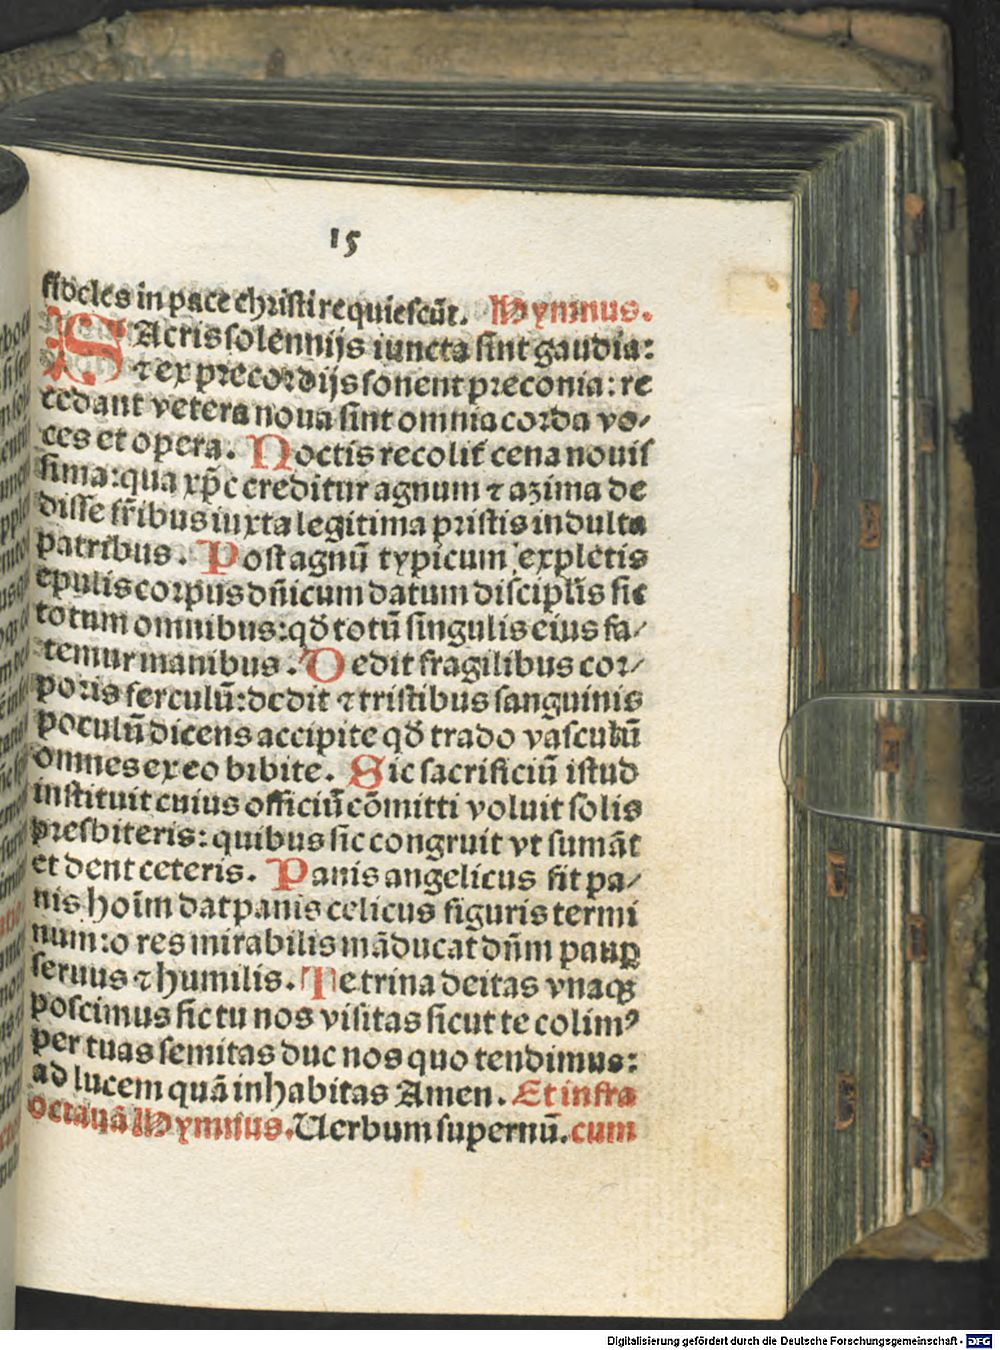 15
fideles in pace christi requiescūt. Hymnus.
SAcris solennijs iuncta sint gaudia:
⁊ ex precordijs sonent preconia: re
cedant vetera noua sint omnia corda vo/
ces et opera. Noctis recolit̄ cena nouis
sima: qua xp̄c creditur agnum ⁊ azima de
disse fr̄ibus iuxta legitima pristis indulta
patribus. Post agnū typicum expletis
epulis corpus dn̄icum datum disciplis̄ sic
totum omnibus: qd̄ totū singulis eius fa/
temur manibus. Dedit fragilibus cor/
poris ferculū: dedit ⁊ tristibus sanguinis
poculū dicens accipite qd̄ trado vasculū
omnes ex eo bibite. Sic sacrificiū istud
instituit cuius officiū cōmitti voluit solis
presbiteris: quibus sic congruit vt sumāt
et dent ceteris. Panis angelicus fit pa/
nis hoīm dat panis celicus figuris termi
num: o res mirabilis māducat dn̄m paup̱
seruus ⁊ humilis. Te trina deitas vnaqꝫ
poscimus sic tu nos visitas sicut te colimꝰ
per tuas semitas duc nos quo tendimus:
ad lucem quā inhabitas Amen. Et infra
octauā Hymnus. Uerbum supernū. cum
Digitalisierung gefördert durch die Deutsche Forschungsgemeinschaft - DFG